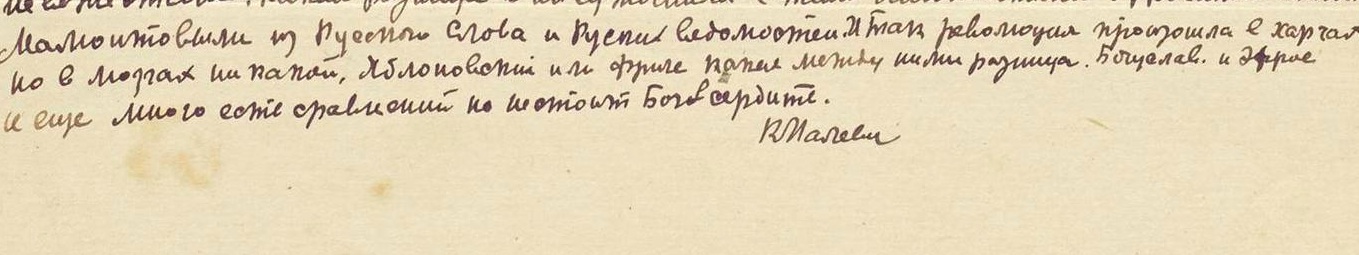 Мамонтовыми из Русского Слова и Руских ведомостей. Итак революция произошла в харчах
но в мозгах никакой, Яблоновский или Фриче какая между ними разница. Богуслав. и Эфрос
и еще много есте сравнений но нестоит Бога сердите.
КМалевич